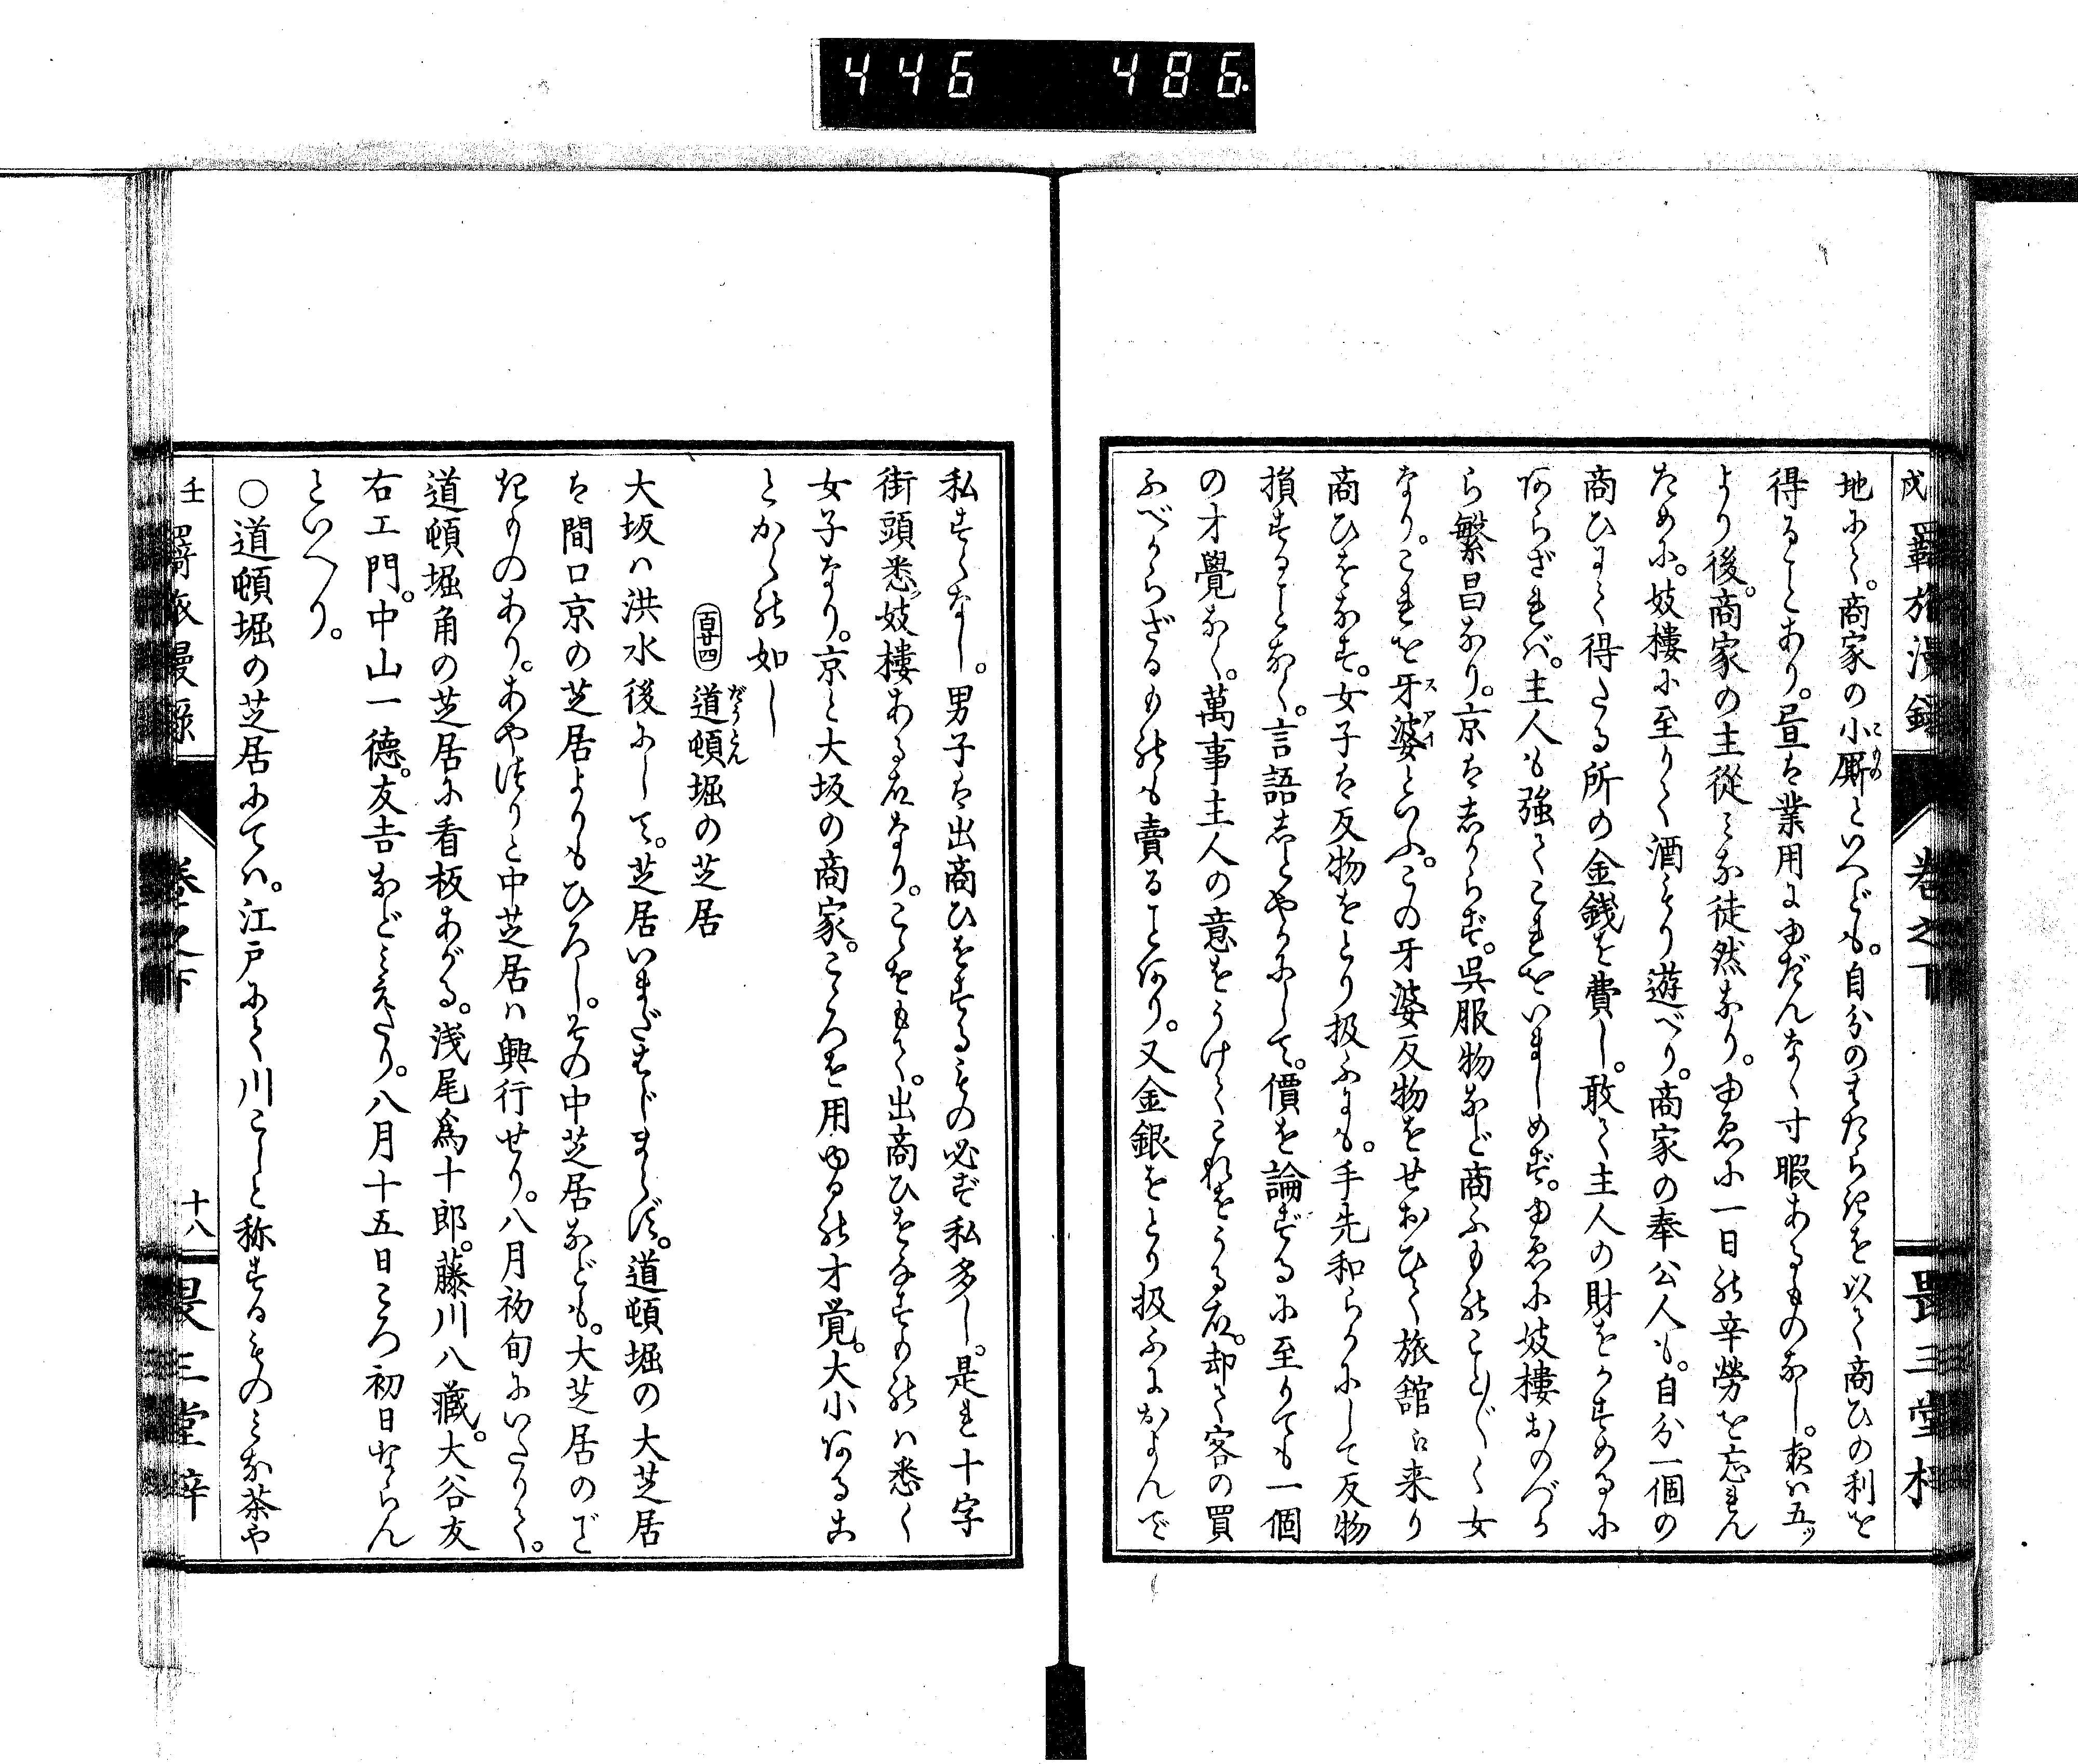 446 486.
戌 羇旅漫録 巻之下 畏三堂
地にて。商家の小厮といへども。自分のはたらきを以て商ひの利を
得ることあり。昼は業用にゆだんなく寸暇あるものなし。夜は五ッ
より後。商家の主従みな徒然なり。ゆゑに一日の辛労を忘れん
ために。妓樓に至りて酒をのり遊べり。商家の奉公人も。自分一個の
商ひにて得たる所の金銭を費し。敢て主人の財をかすめるに
あらざれバ。主人も強てこれをいましめず。ゆゑに妓樓おのづか
ら繁昌なり。京は志からず。呉服物など商ふもの こと〴〵く女
なり。これを牙婆といふ。この牙婆反物をせおひて旅舘に来り
商ひをなす。女子は反物をとり扱ふにも。手先和らかにして反物
損ずることなく。言語志とやかにして。價を論ずるに至りても一個
の才覺なく。萬事主人の意をうけてこれをうる故。却て客の買
ふべからざるものも賣ることあり。又金銀をとり扱ふにおよんで
私することなし。男子は出商ひをするもの必ず私多し。是れ十字
街頭悉ク妓樓ある故なり。こゝをもて。出商ひをなすものハ悉く
女子なり。京と大坂の商家。こゝろを用ゆるの才覚。大小あるこ
とかくの如し
百廿四 道頓堀の芝居
大坂ハ洪水後にして。芝居いまだはじまらず。道頓堀の大芝居
は間口京の芝居よりもひろし。その中芝居なども。大芝居のご
きものあり。あやつりと中芝居ハ興行せり。八月初旬にいたりて。
道頓堀角の芝居に看板あがる。浅尾為十郎。藤川八藏。大谷友
右エ門。中山一徳。友吉などみえたり。八月十五日ころ初日ならん
といへり。
○道頓堀の芝居にてハ。江戸にて川こしと称するものみな茶や
壬 羇旅漫録 巻之下 十八 畏三堂梓